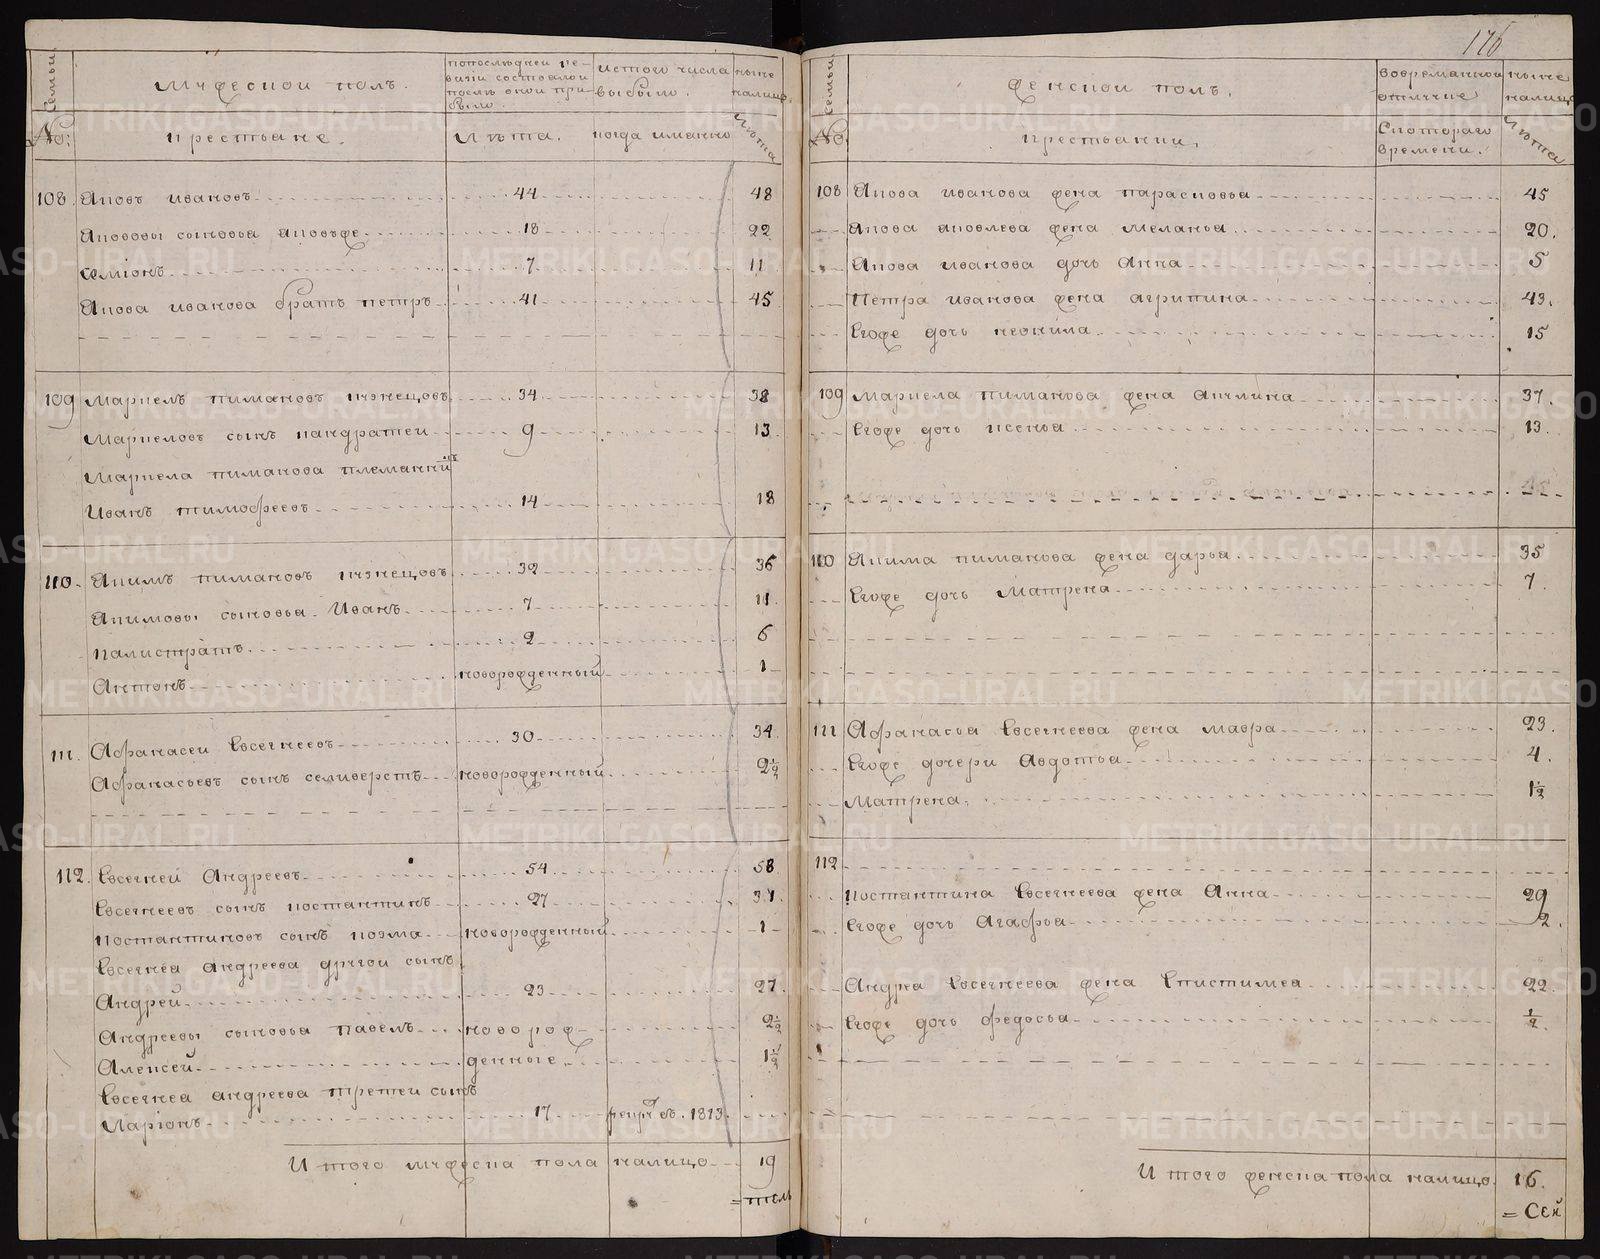 176
семьи
Мужескои полъ.
попослѣдней ре-
визіи состояло и
послѣ онои при-
было.
Истого числа
выбыло.
ныне
налицо.
№:
крестьяне.
Лѣта.
когда имянно
Лѣта
108. Яковъ ивановъ 44 48
Яковловы сыновья яковъже 18 22
семіонъ 7 11
Якова иванова братъ петръ 41 45
109 Маркелъ пимановъ кузнецовъ 34 38
Маркеловъ сынъ кандратеи 9 13
Маркела пиманова племянникъ
Иванъ тимофеевъ 14 18
110. Якимъ пимановъ кузнецовъ 32 36
Якимовы сыновья Иванъ 7 11
калистратъ 2 6
Антонъ новорожденный 1
111. Афанасеи Евсегнеевъ 30 34
Афанасьевъ сынъ селиверстъ новорожденный 2½
112. Евсегней Андреевъ 54 58
Евсегнеевъ сынъ костантинъ 27 31
костантиновъ сынъ козма новорожденный 1
Евсегнея андреева другои сынъ
Андрей 23 27
Андреевы сыновья павелъ новорож- 2½
Алексей денные 1½
Евсегнея андреева третеи сынъ
Ларіонъ 17 рекрутъ въ 1813.
Итого мужеска пола налицо 19
семьи
Женскои полъ.
вовременнои
отлучке
ныне
налицо
№
крестьянки.
Скотораго
времени.
Лѣта
108 Якова иванова жена парасковья 45
Якова яковлева жена меланья 20.
Якова иванова дочь Анна 5
Петра иванова жена агрипина 43.
Егоже дочь неонила 15
109 Маркела пиманова жена Акилина 37.
Егоже дочь ксенья 13.
110 Якима пиманова жена дарья 35
Егоже дочь Матрена 7.
111 Афанасья Евсегнеева жена мавра 23.
Егоже дочери Авдотья 4.
Матрена. 1½
112
костантина Евсегнеева жена Анна 29
Егоже дочь Агафья 2.
Андрея Евсегнеева жена Епистимея 22.
Егоже дочь федосья ½.
Итого женска пола налицо. 16.
= Сен
METRIKI.GASO-URAL.RU